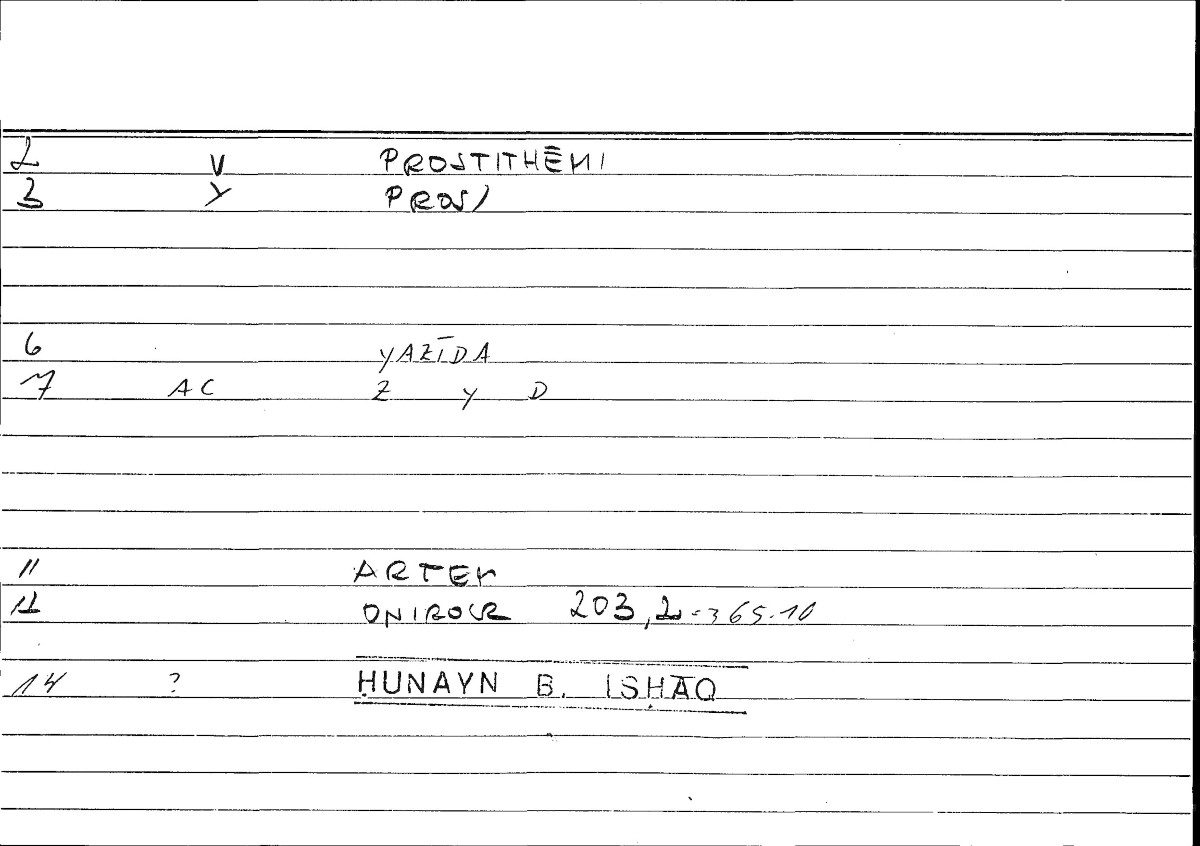 2 V PROSTITHĒMI
3 Y PROS/
6 YAZĪDA
7 AC Z Y D
11 ARTEM
12 ONIROCR 203,2 = 365.10
14 ? ḤUNAYN B. ISḤĀQ